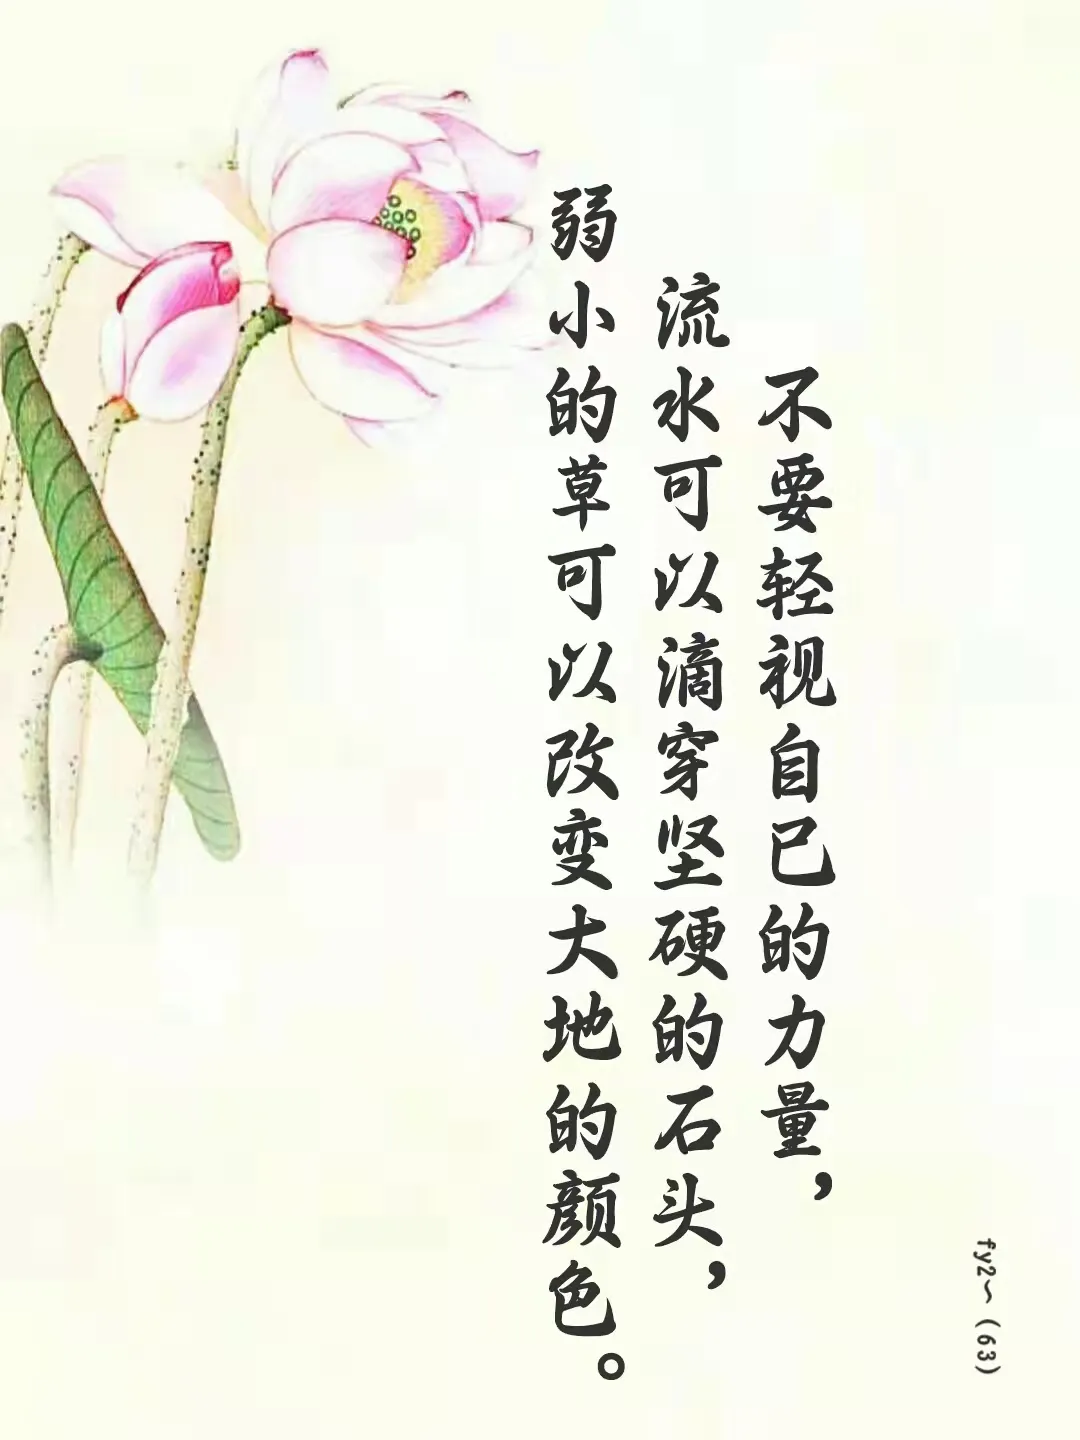 不要轻视自己的力量，
流水可以滴穿坚硬的石头，
弱小的草可以改变大地的颜色。
fy2～（63）